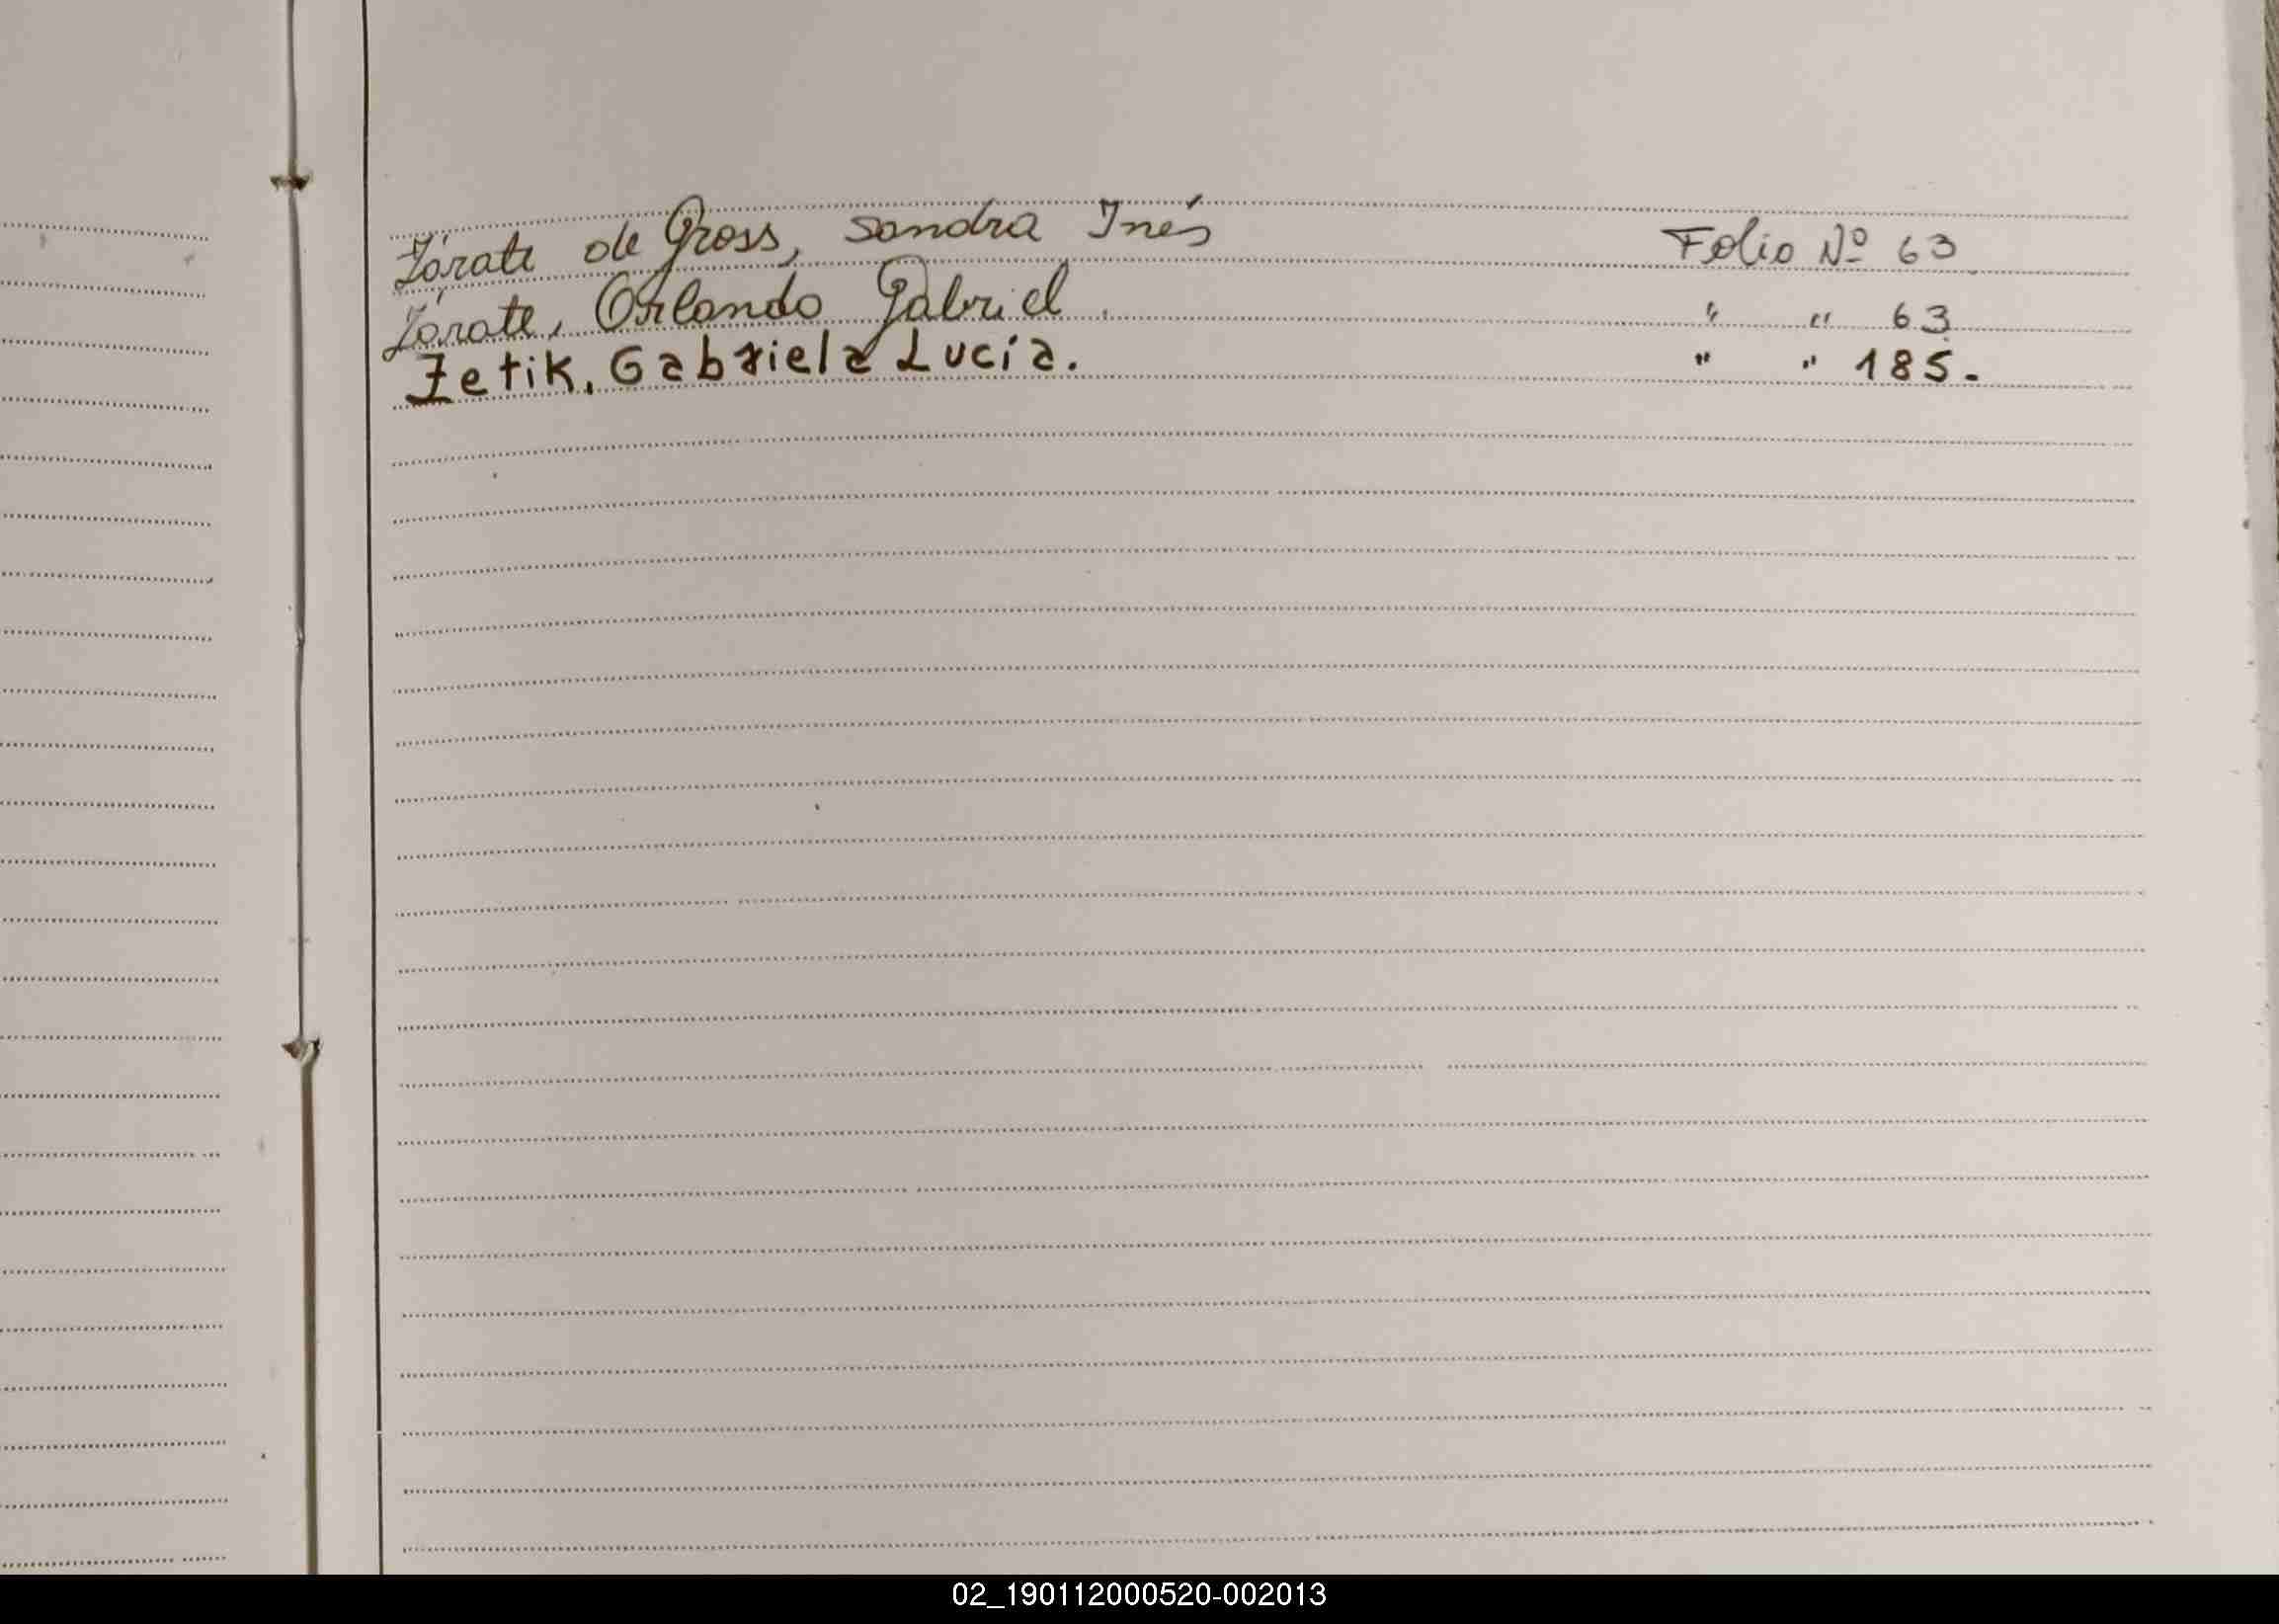 Zárate de Gross, Sandra Inés Folio Nº 63
Zárate, Orlando Gabriel. " " 63
Zetik, Gabriela Lucía. " " 185.
02_190112000520-002013